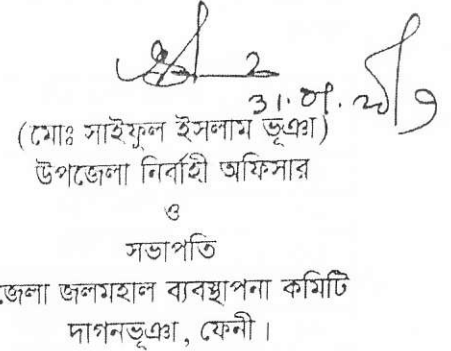 (মোঃ সাইফুল ইসলাম ভূঞা)
উপজেলা নির্বাহী অফিসার
ও
সভাপতি
জেলা জলমহাল ব্যবস্থাপনা কমিটি
দাগনভূঞা, ফেনী।